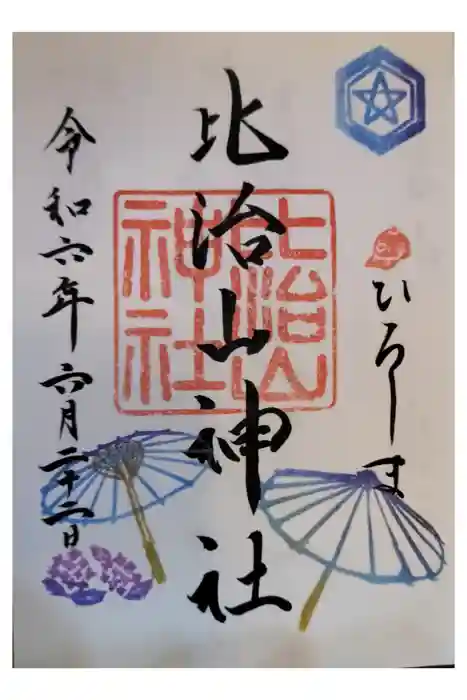 ひろしま
比治山神社
比治山
神社
令和六年六月二十二日